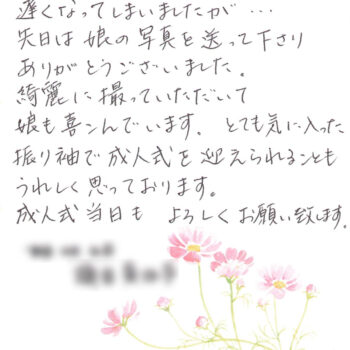 遅くなってしまいましたが…
先日は娘の写真を送って下さり
ありがとうございました。
綺麗に撮っていただいて
娘も喜こんでいます。とても気に入った
振り袖で成人式を迎えられることも
うれしく思っております。
成人式当日も よろしくお願い致します。